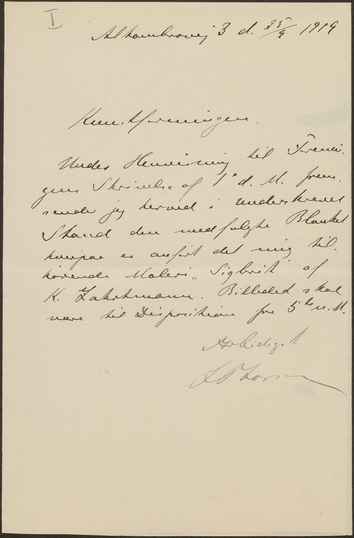 I
Alhambravej 3 d. 25/9 1919
Kunstforeningen.
Under Henvisning til Forenin-
gens Skrivelse af 1' d. M. frem-
sender jeg herved i underskrevet
Stand den medfølgte Blanket
hvorpaa er anført det mig til-
hørende Maleri "Sigbrit" af
K. Zahrtmann. Billedet skal
være til Disposition fra 5te n. M.
Ærbødigst